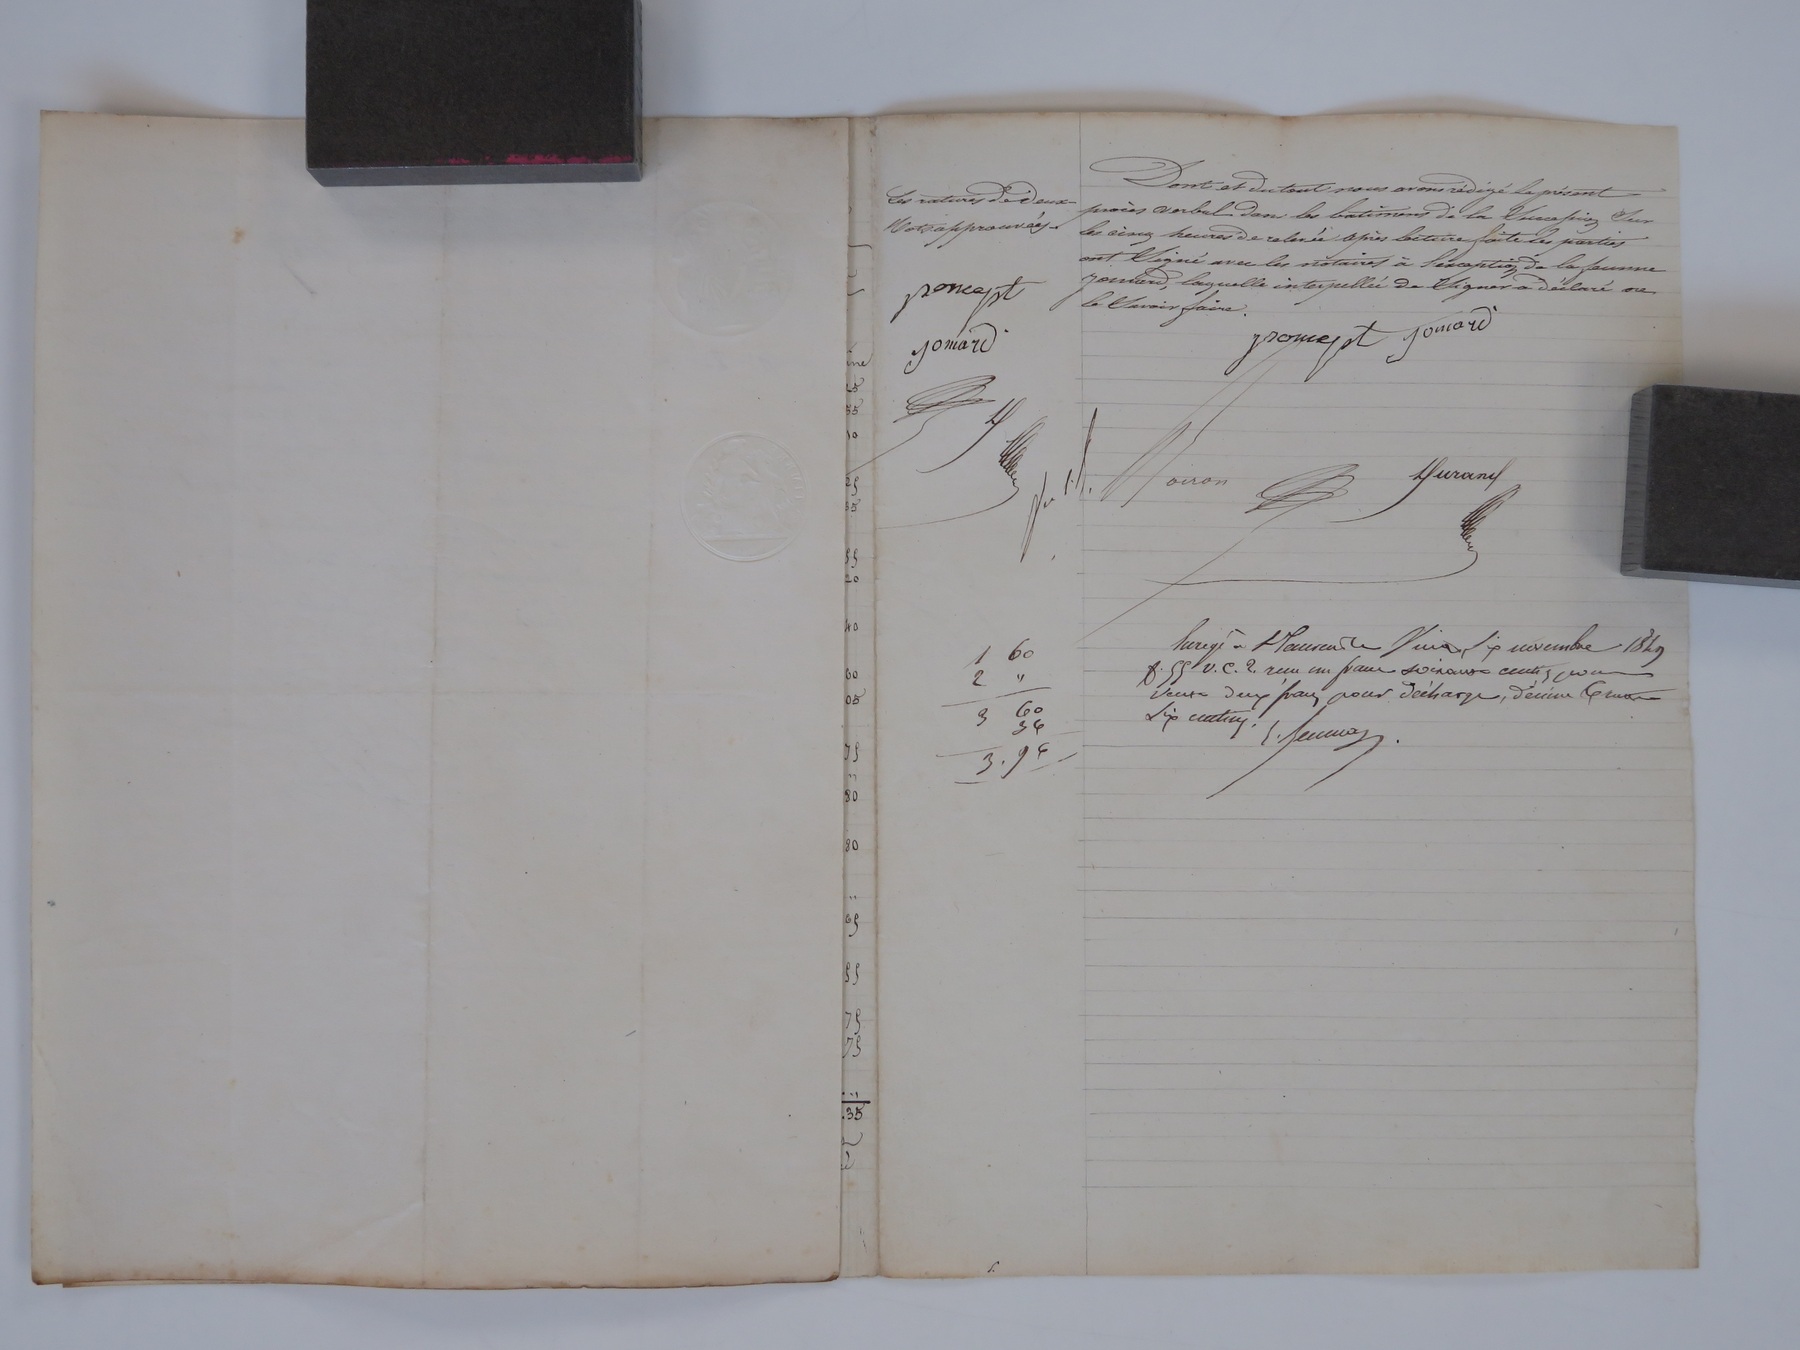 Les ratures de deux
Mots approuvées.
poncept
Jomard
Dont et du tout nous avons rédigé le présent
procès verbal dans les batimens de la sur
les cinq heures de relevée après lecture faite les parties
ont signé avec les notaires à l'exception de la femme
Jomard, laquelle interpellée de signer a déclaré ne
le savoir faire.
poncept Jomard
Noiron
Durand
1 60
2 "
3 60
36
3.96
Enregé à six novembre 1849
f. 55 v. c. 2. reçu un franc soixante centes pour
vente deux francs pour décharge, décime trente
six centimes.
ine
25
35
10
35
55
20
40
60
05
75
"
80
80
"
65
55
75
75
"
.35